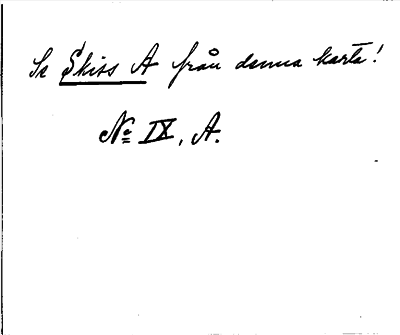 Se Skiss A från denna karta!
No IX, A.